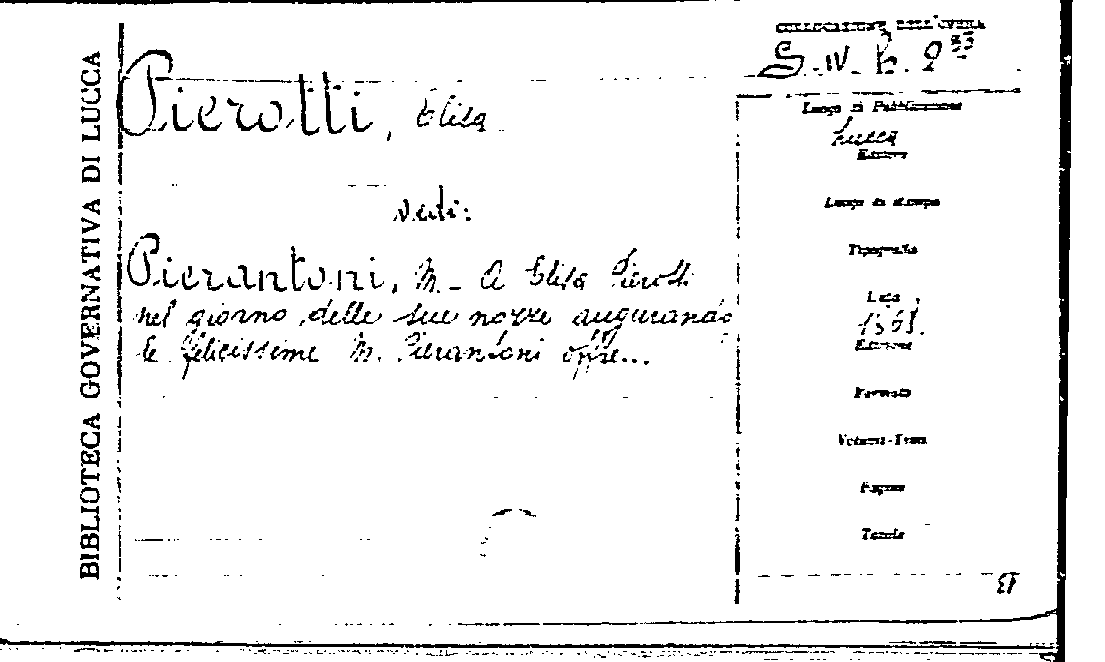 BIBLIOTECA GOVERNATIVA DI LUCCA
COLLOCAZIONE DELL'OPERA
Pierotti, Elisa
vedi:
Pierantoni, M. - A Elisa Pierotti
nel giorno delle sue nozze augurando
le felicissime M. Pierantoni offre...
Luogo di Pubblicazione
Lucca
Editore
Luogo di stampa
Tipografia
Data
Edizione
Formato
Volumi-Tomi
Pagine
Tavole